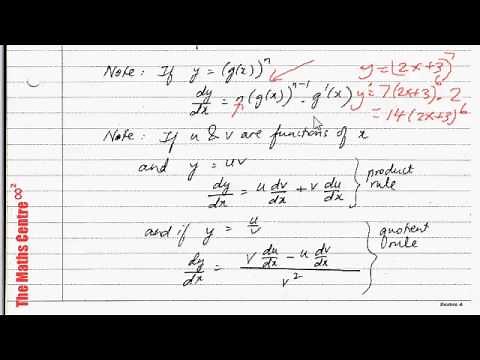 Note: If y = (g(x))ⁿ
dy/dx = n(g(x))ⁿ⁻¹ · g'(x)
y = (2x+3)⁷
y' = 7(2x+3)⁶ · 2
= 14(2x+3)⁶
Note: If u & v are functions of x
and y = uv
dy/dx = u dv/dx + v du/dx } product rule
and if y = u/v
dy/dx = (v du/dx − u dv/dx) / v² } quotient rule
The Maths Centre ∞²